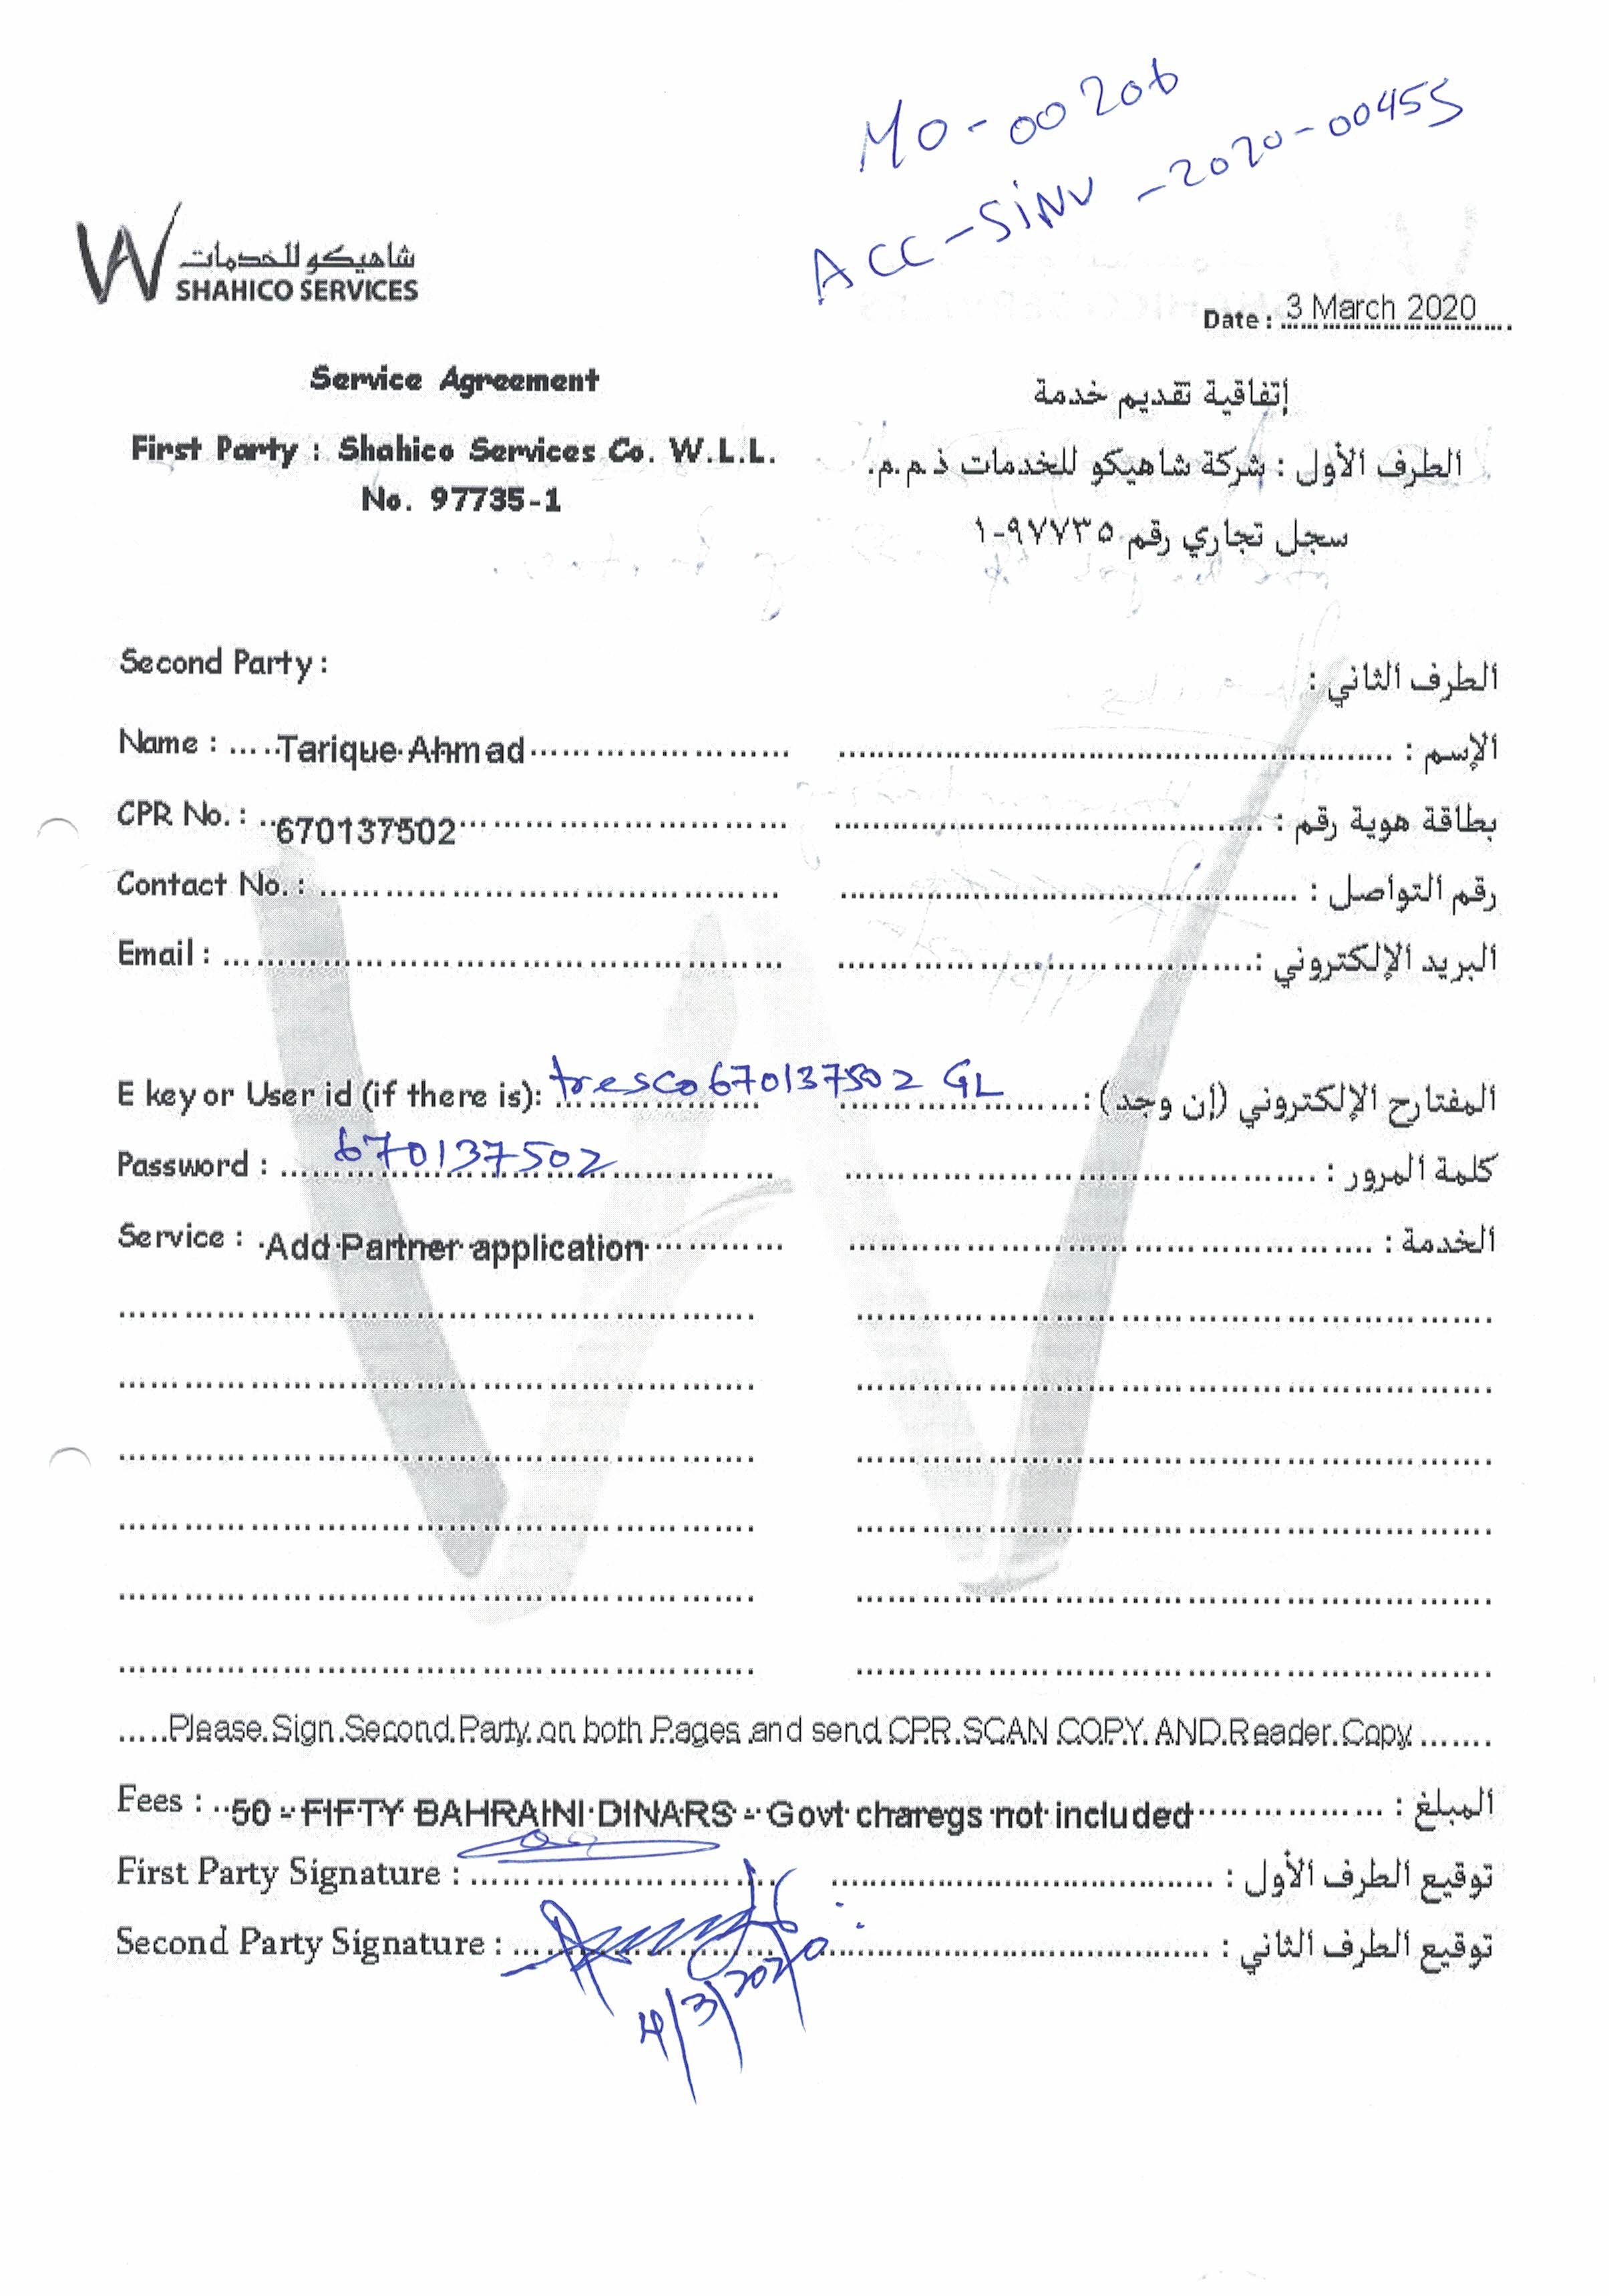 MO-00206
ACC-SINV-2020-00455
شاهيكو للخدمات
SHAHICO SERVICES
Date : 3 March 2020
Service Agreement
إتفاقية تقديم خدمة
First Party : Shahico Services Co. W.L.L.
الطرف الأول : شركة شاهيكو للخدمات ذ.م.م.
No. 97735-1
سجل تجاري رقم ٩٧٧٣٥-١
Second Party :
الطرف الثاني :
Name : Tarique Ahmad
الإسم :
CPR No. : 670137502
بطاقة هوية رقم :
Contact No. :
رقم التواصل :
Email :
البريد الإلكتروني :
E key or User id (if there is): tresco670137502 GL
المفتارح الإلكتروني (إن وجد) :
Password : 670137502
كلمة المرور :
Service : Add Partner application
الخدمة :
Please Sign Second Party on both Pages and send CPR SCAN COPY AND Reader Copy
Fees : 50 - FIFTY BAHRAINI DINARS - Govt charegs not included
المبلغ :
First Party Signature :
توقيع الطرف الأول :
Second Party Signature :
توقيع الطرف الثاني :
4/3/2020